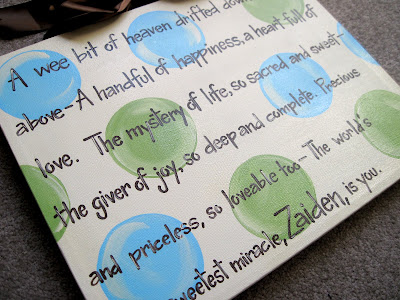 A wee bit of heaven drifted down
above - A handful of happiness, a heart full of
love. The mystery of life, so sacred and sweet -
the giver of joy, so deep and complete. Precious
and priceless, so loveable too - The world's
sweetest miracle, Zaiden, is you.